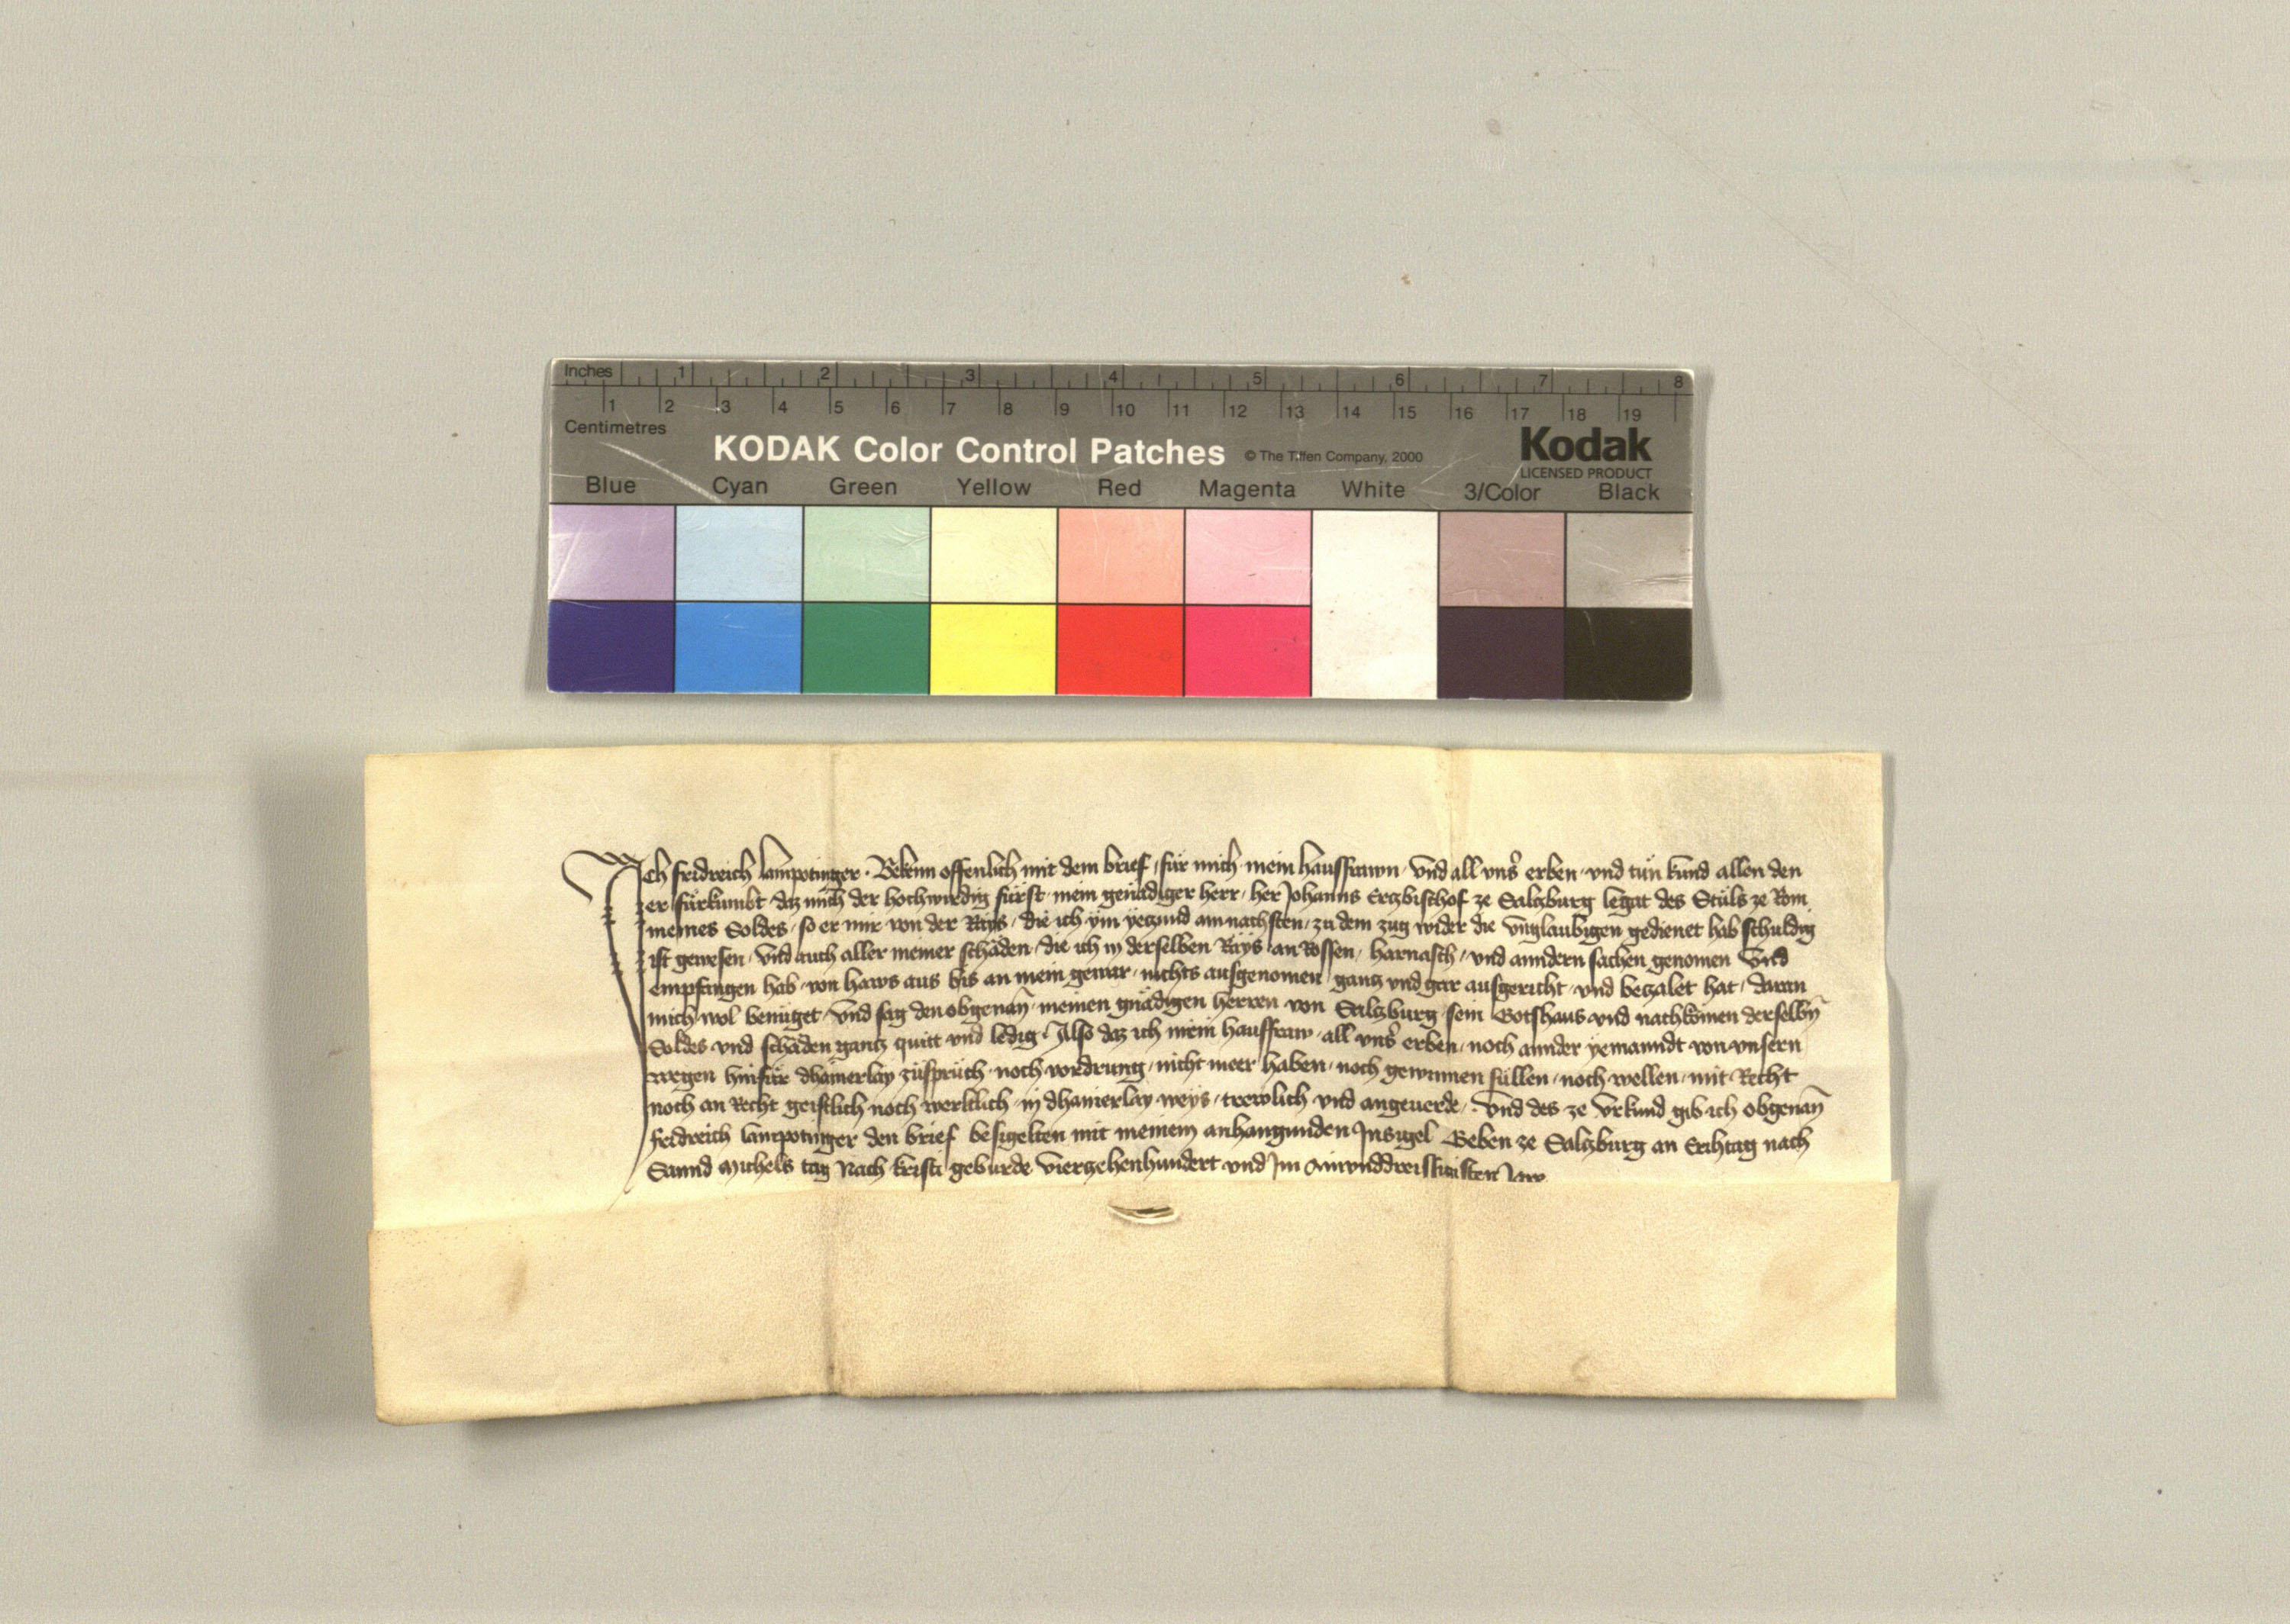 Inches 1 2 3 4 5 6 7 8
1 2 3 4 5 6 7 8 9 10 11 12 13 14 15 16 17 18 19
Centimetres
KODAK Color Control Patches © The Tiffen Company, 2000 Kodak
LICENSED PRODUCT
Blue Cyan Green Yellow Red Magenta White 3/Color Black
Ich fridreich lampotinger · Bekenn offenlich mit dem brief / für mich mein hausfrawn · Und all unsˀ erben · und tůn kund allen den
er fürkumbt daz mich der hochwirdig fürst mein genädiger herr · her Johanns Erzbischof ze Salzburg legat des Stůls ze Rom
meines Soldes · so er mir von der Rays · die ich ym yeczund am nachsten / zu dem zug wider die ungläubigen gedienet hab schuldig
ist gewesen · Und auch aller meiner schäden · die ich in derselben Rays an Rossen / harnasch / und anndern sachen genomen Und
empfangen hab · von haws aus bis an mein gewar · nichts ausgenomen / gantz und gar ausgericht · und beczalet hat / daran
mich wol benüget · Und sag den obgenan̄ meinen gnädigen herren von Salzburg · sein Gotshaus und nachkömen derselbn̄
Soldes und schäden gantz quitt und ledig · Also daz ich mein hausfraw · all unsˀ erben · noch annder yemanndt von unsern
wegen hinfür dhainerlay züsprüch · noch vordrung / nicht meer haben · noch gewinnen süllen / noch wellen / mit Recht
noch an Recht geistlich noch werltlich · in dhainerlay weys / trewlich und angeuerde / · Und des ze Urkund gib ich obgenan̄
fridreich lampotinger den brief besigelten mit meinem anhangunden Insigel Geben ze Salzburg an Erihtag nach
Sannd Michels tag Nach kristi geburde vierzehenhundert und Im Ainunddreissigisten Jare